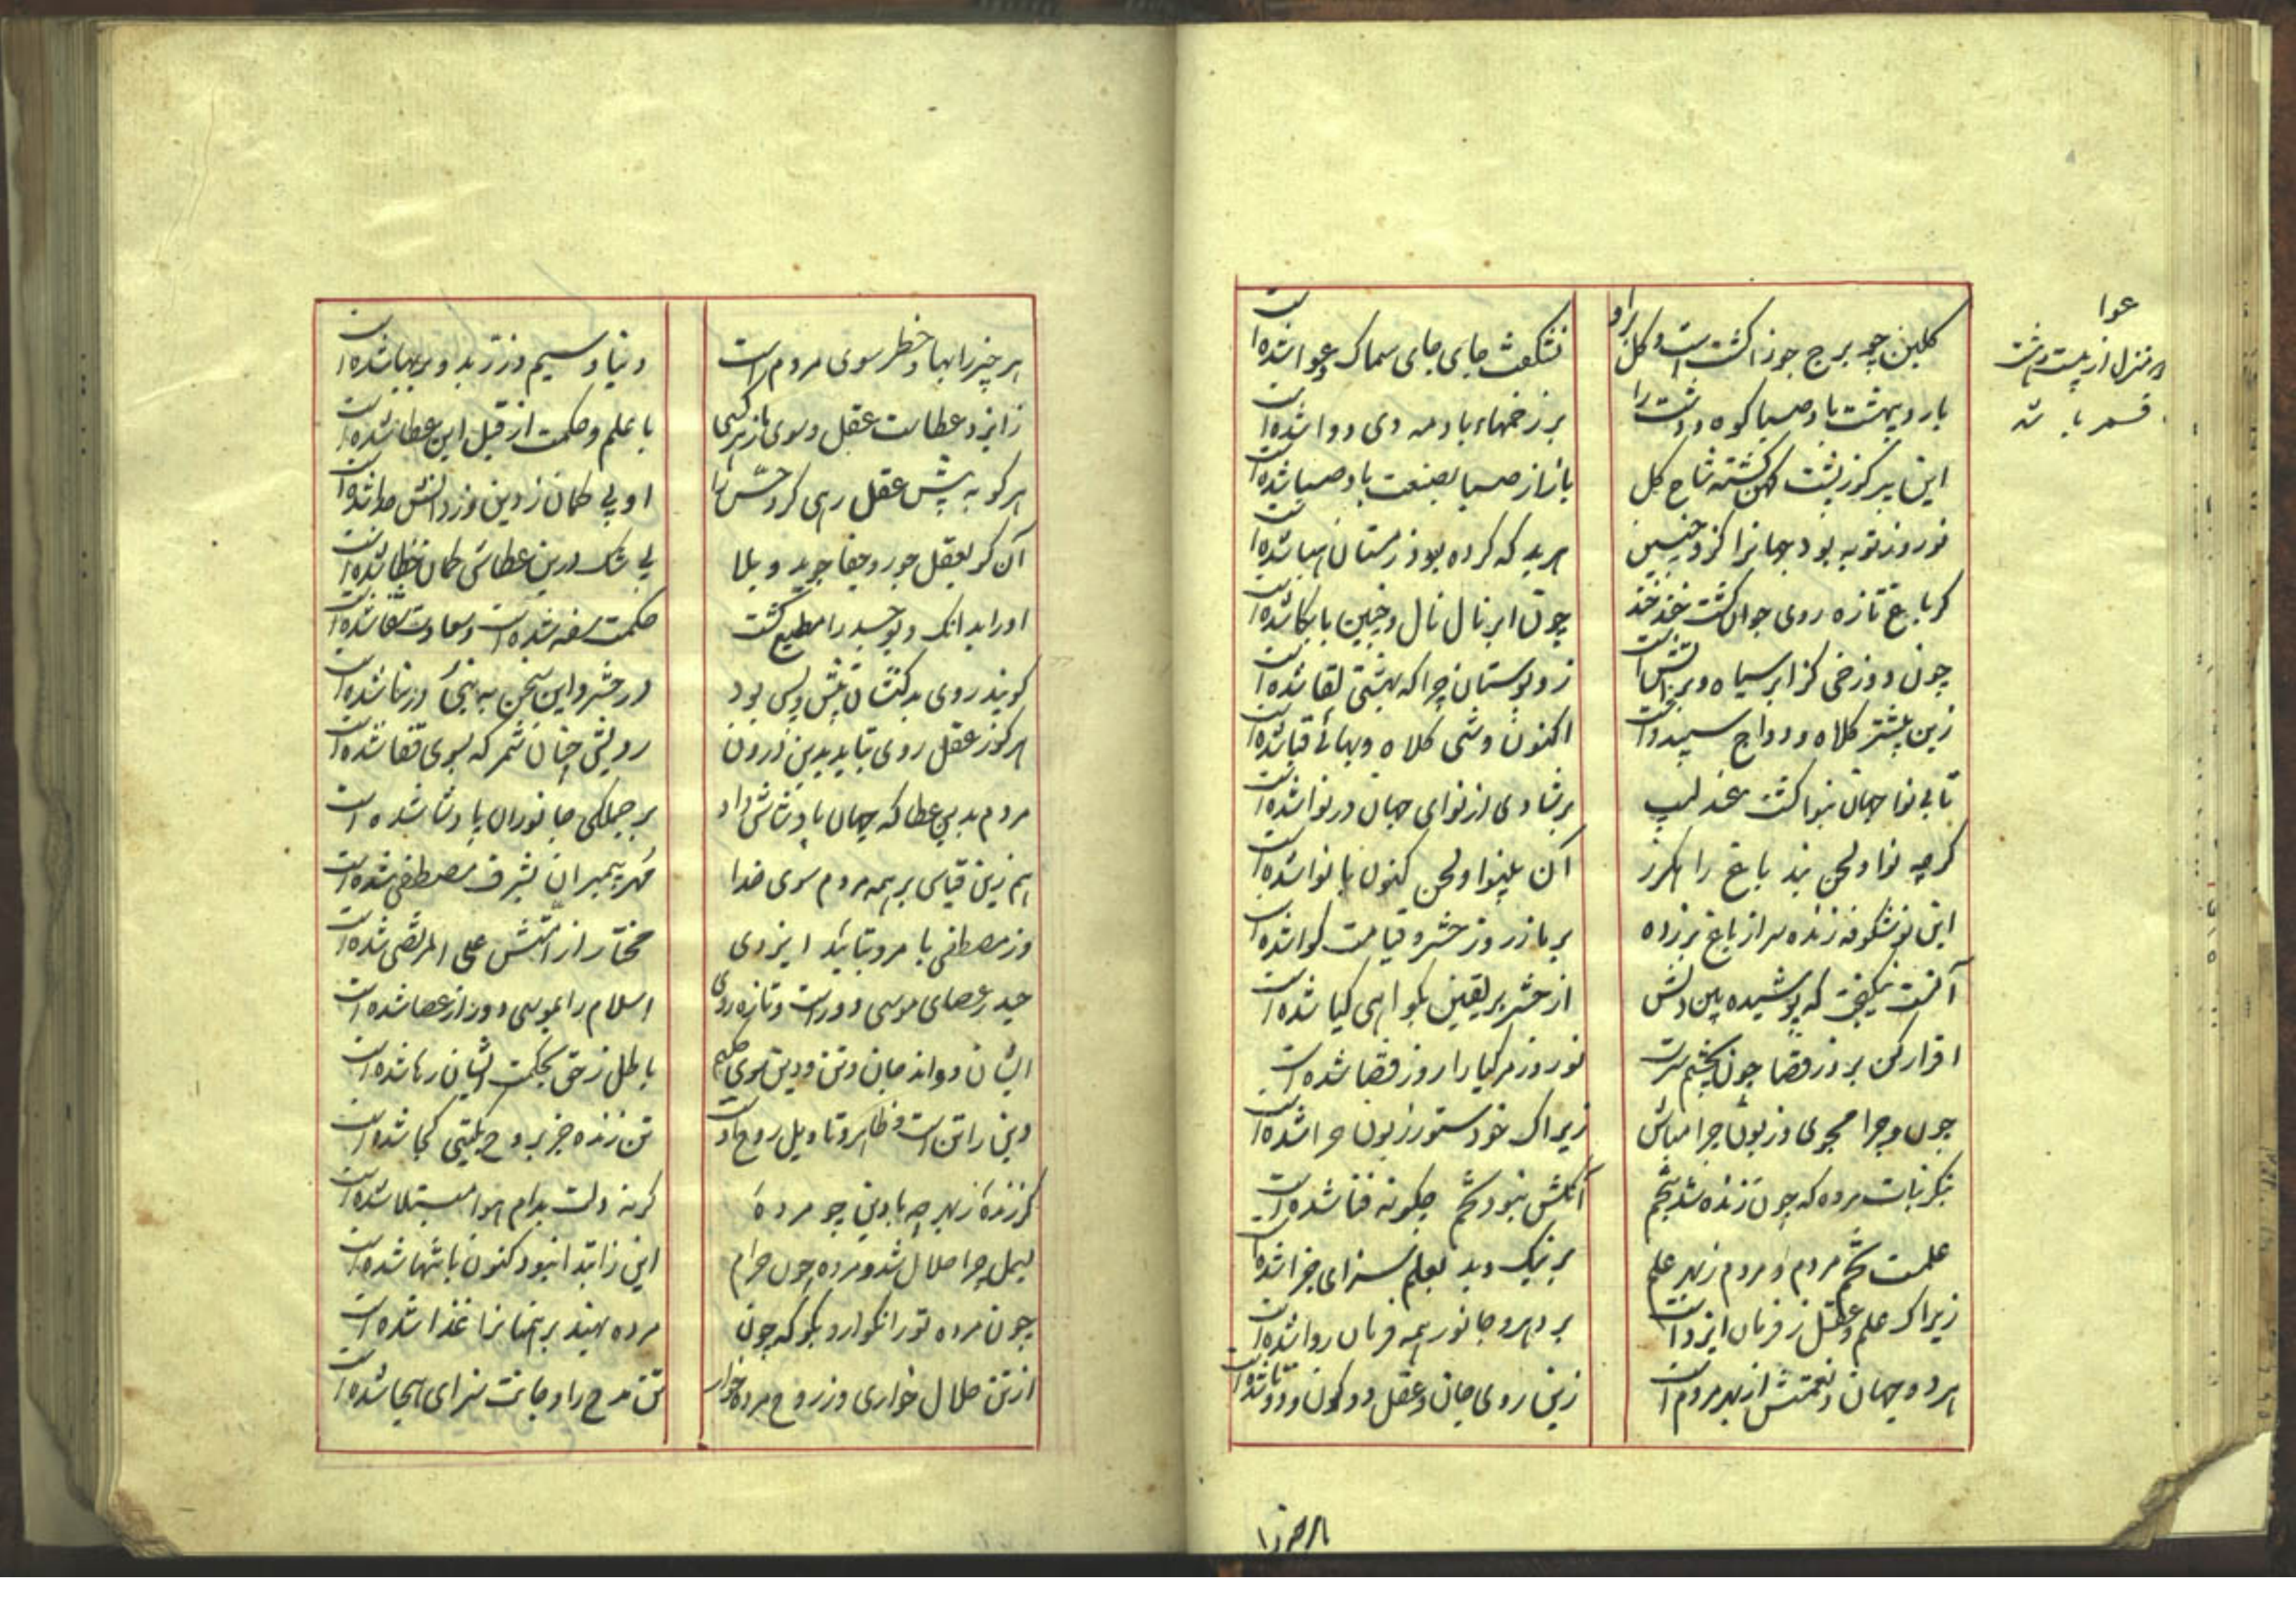 گلبن چو برج جوزا گشت است و گل براو
نشگفت جای جای سماک و عوا شده است
باردیبهشت باد صبا کوه و دشت را
بر زخمهاء باد مه دی دوا شده است
این پیر کوز پشت کهن گشته شاخ گل
باز از صبا بصنعت باد صبا شده است
نوروز توبه بود جهانرا کزو چنین
هر بد که کرده بود زمستان هبا شده است
گر باغ تازه روی جوان گشت خند خند
چون ابر نال نال و چنین با بکا شده است
چون دوزخی کز ابر سیاه و پر آتش است
زو بوستان چرا که بهشتی لقا شده است
زین پیشتر کلاه و دواج سپید داشت
اکنون وشی کلاه و بهائی قبا شده است
تا بی نوا جهان بنوا گشت عندلیب
بر شادی از نوای جهان در نوا شده است
گرچه نوا و لحن نبد باغ را هگرز
آن بینوا و لحن کنون با نوا شده است
این نو شکوفه زنده سر از باغ بر زده
بر ما ز روز حشر و قیامت گوا شده است
از حشر بر یقین بگواهی گیا شده است
اقرار کن بروز قضا چون بچشم سرت
نوروز مر گیا را روز قضا شده است
چون و چرا مجوی و زبون چرا مباش
زیراک خود ستور زبون چرا شده است
بنگر نبات مرده که چون زنده شد بتخم
آنکش نبود تخم چگونه فنا شده است
علمست تخم مردم و مردم ز بهر علم
بر نیک و بد بعلم سزای جزا شده است
زیراک علم و عقل ز فرمان ایزد است
بر دهر و جانور همه فرمان روا شده است
هر دو جهان و نعمتش از بهر مردم است
زین روی جان و عقل دو کون و دو تا شده است
عوا
منزل از بیست و هشت
قمر باشد
هر چیز را بها و خطر سوی مردم است
دیبا و سیم و زر زبد و بر بها شده است
ز ایزد عطاست عقل و سوی
با علم و حکمت از قبل این عطا شده است
هر کو به پیش عقل رهی کرد حسّ را
او بی گمان ز دین و ز دانش جدا شده است
آن کز بعقل جور و جفا جوید و بلا
بی شک درین عطاش گمان خطا شده است
او را بدانک دیو جسد را مطیع گشت
حکمت سفه شده است و سعادت شقا شده است
گویند روی بدکنشان پیش و پس بود
در حشر و این سخن به نبی در ثنا شده است
هر کو ز عقل روی بتابد بدین درون
رویش چنان شمر که بسوی قفا شده است
مردم بدین عطا که جهان پادشاش داد
بر جملگی جانوران پادشا شده است
هم زین قیاس بر همه مردم سوی خدا
مهر پیمبران بشرف مصطفی شده است
وز مصطفی با مر و بتأئید ایزدی
مختار از امّتش علی المرتضی شده است
حیدر عصای موسی دور است و تازه روی
اسلام را بموسی دور از عصا شده است
ایشان دو اند جان و تن و دین سوی حکیم
باطل ز حق بحکمت ایشان رها شده است
دین را تن است ظاهر و تاویل روح او است
تن زنده جز بروح بگیتی کجا شده است
گر زندۀ ز بهر چه با دین چو مردۀ
گرنه دلت بدام هوا مبتلا شده است
بسمل چرا حلال شد و مرده چون حرام
این ز ابتدا نبود کنون بانتها شده است
چون مرده تو را نگوارد بگو که چون
مرده بهند برهمنانرا غذا شده است
از تن حلال خواری وز روح مرده خوار
تن مدح را و جانت سزای هجا شده است